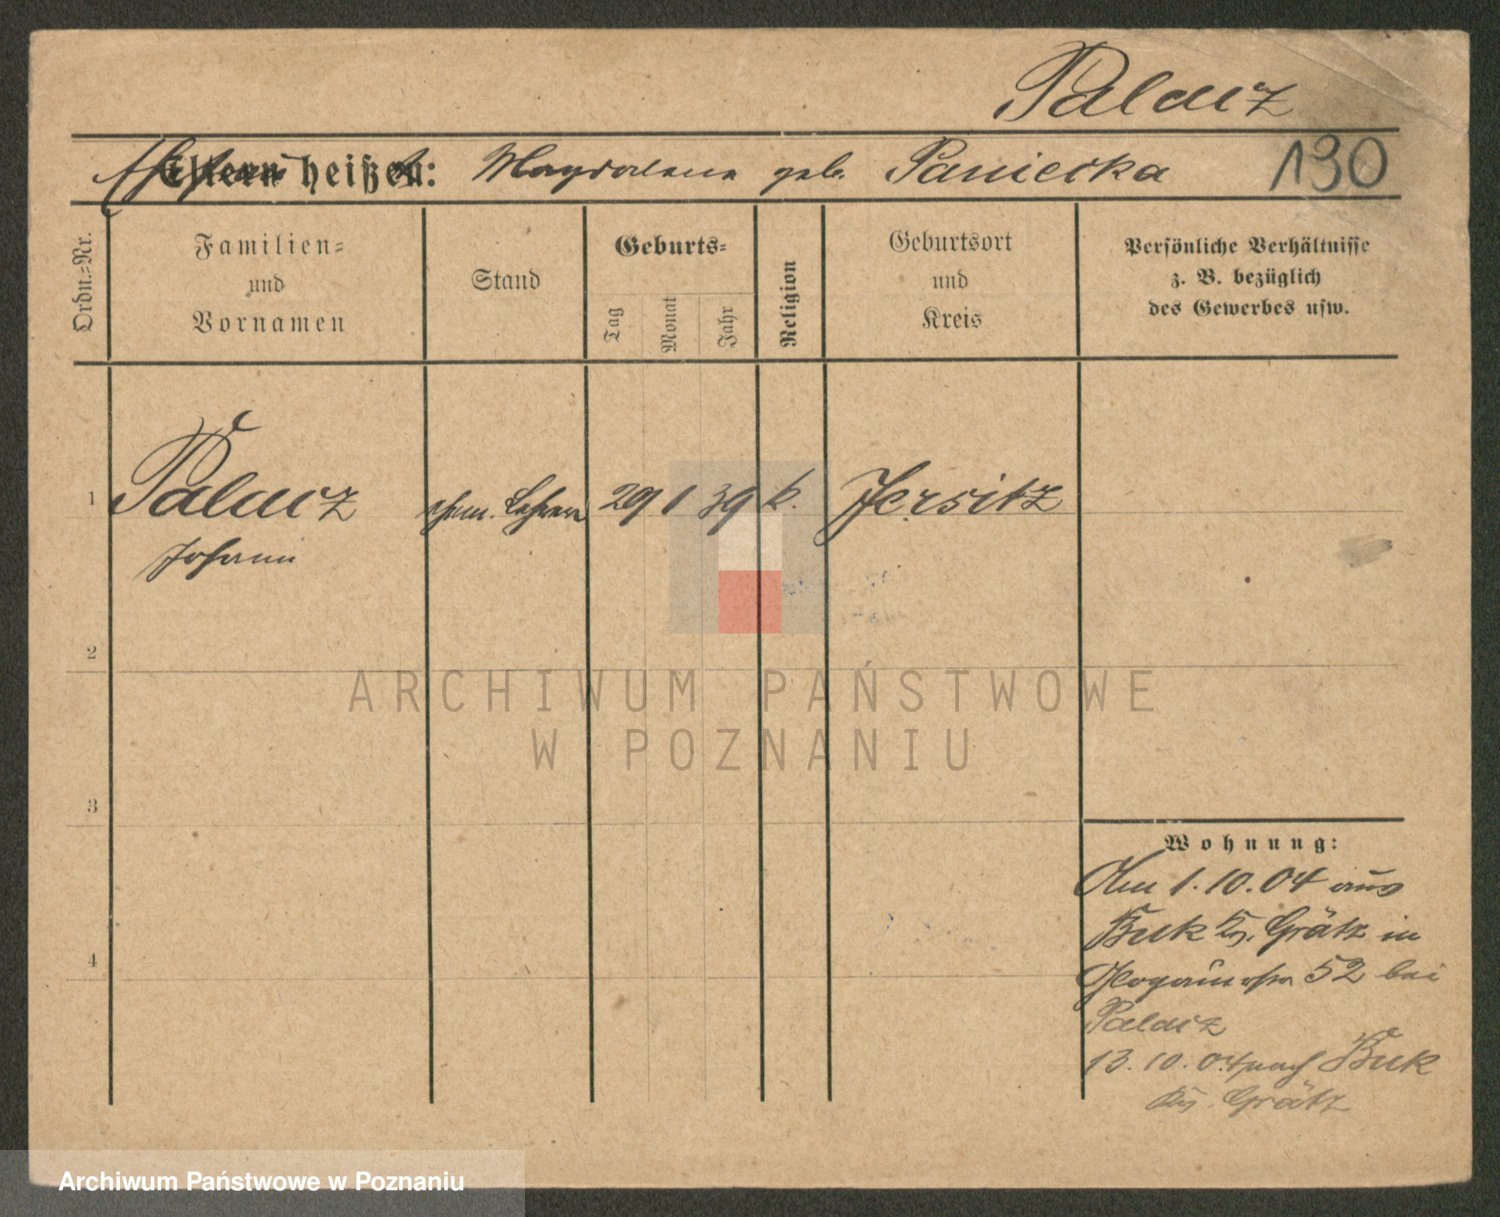 Palacz
Eltern heißen: Magdalena geb. Paniecka 130
Ordn.=Nr.
Familien=
und
Vornamen
Stand
Geburts=
Tag
Monat
Jahr
Religion
Geburtsort
und
Kreis
Persönliche Verhältnisse
z. B. bezüglich
des Gewerbes usw.
1 Palacz ehem. Lehrer 29 1 39 k. Jersitz
Johann
2
3
4
Wohnung:
Am 1.10.04 aus
Buk Krs. Grätz in
52 bei
Palacz
13.10.04 nach Buk
Krs. Grätz
ARCHIWUM PAŃSTWOWE
W POZNANIU
Archiwum Państwowe w Poznaniu